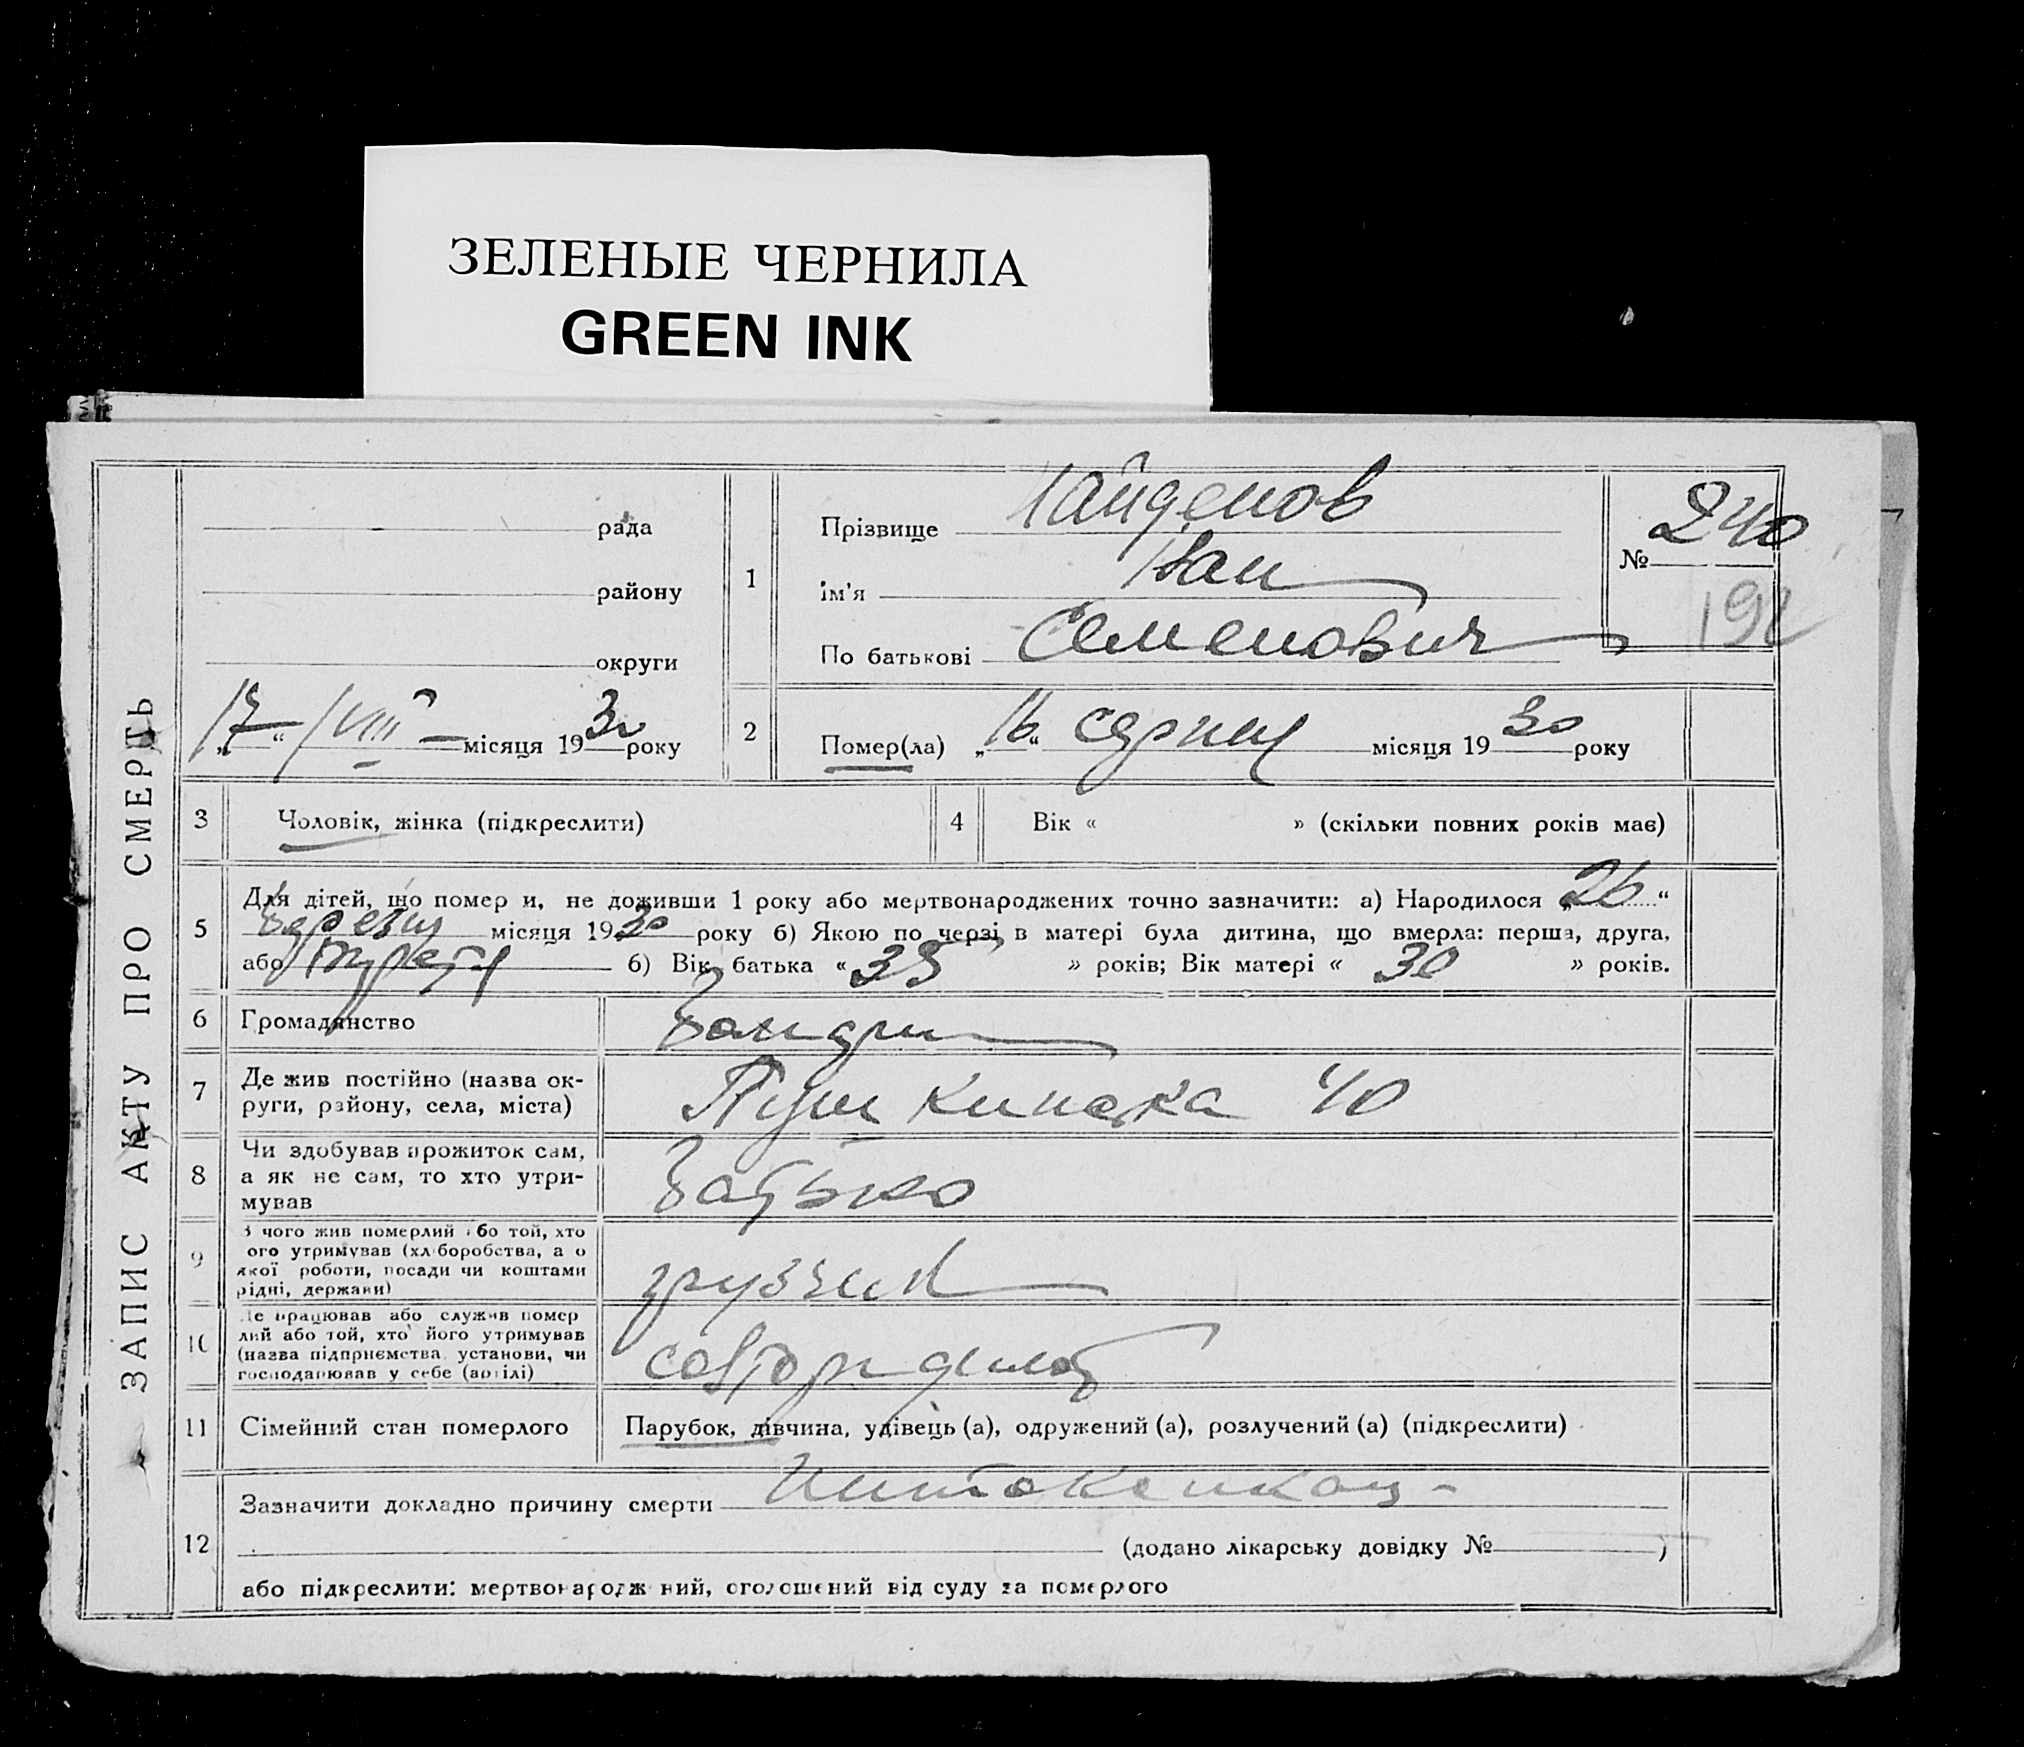 ЗЕЛЕНЫЕ ЧЕРНИЛА
GREEN INK
ЗАПИС АКТУ ПРО СМЕРТЬ
рада
району
округи
„17“ VIII місяця 1930 року
1
Прізвище Найденов
ім'я Іван
По батькові Семенович
№ 240
192
2
Помер(ла) „16“ серпня місяця 1930 року
3 Чоловік, жінка (підкреслити)
4 Вік « » (скільки повних років має)
5 Для дітей, що помер и, не доживши 1 року або мертвонароджених точно зазначити: а) Народилося „26“
березня місяця 1930 року б) Якою по черзі в матері була дитина, що вмерла: перша, друга,
або третя б) Вік батька « 35 » років; Вік матері « 30 » років.
6 Громадянство
7 Де жив постійно (назва ок-
руги, району, села, міста) Пушкинска 40
8 Чи здобував прожиток сам,
а як не сам, то хто утри-
мував батько
9 З чого жив померлий або той, хто
ого утримував (хліборобства, а о
якої роботи, посади чи коштами
рідні, держави) грузчик
10 Де працював або служив помер
лий або той, хто його утримував
(назва підприємства, установи, чи
господарював у себе (артілі) совторгфлот
11 Сімейний стан померлого Парубок, дівчина, удівець (а), одружений (а), розлучений (а) (підкреслити)
12 Зазначити докладно причину смерти
(додано лікарську довідку № )
або підкреслити: мертвонароджений, оголошений від суду за померлого